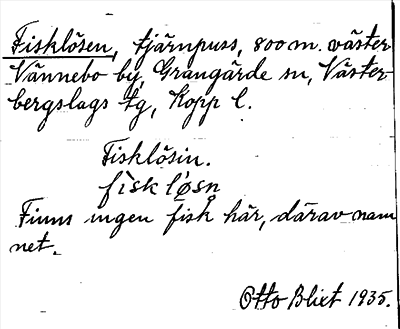 Fisklösen, tjärnpuss, 800 m. väster
Vännebo by, Grangärde sn, Väster-
bergslags tg, Kopp l.
Fisklösin.
Finns ingen fisk här, därav nam
net.
Otto Blixt 1935.